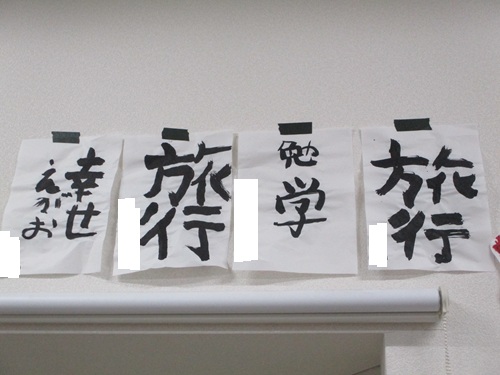 幸せ
えがお
旅行
勉学
旅行